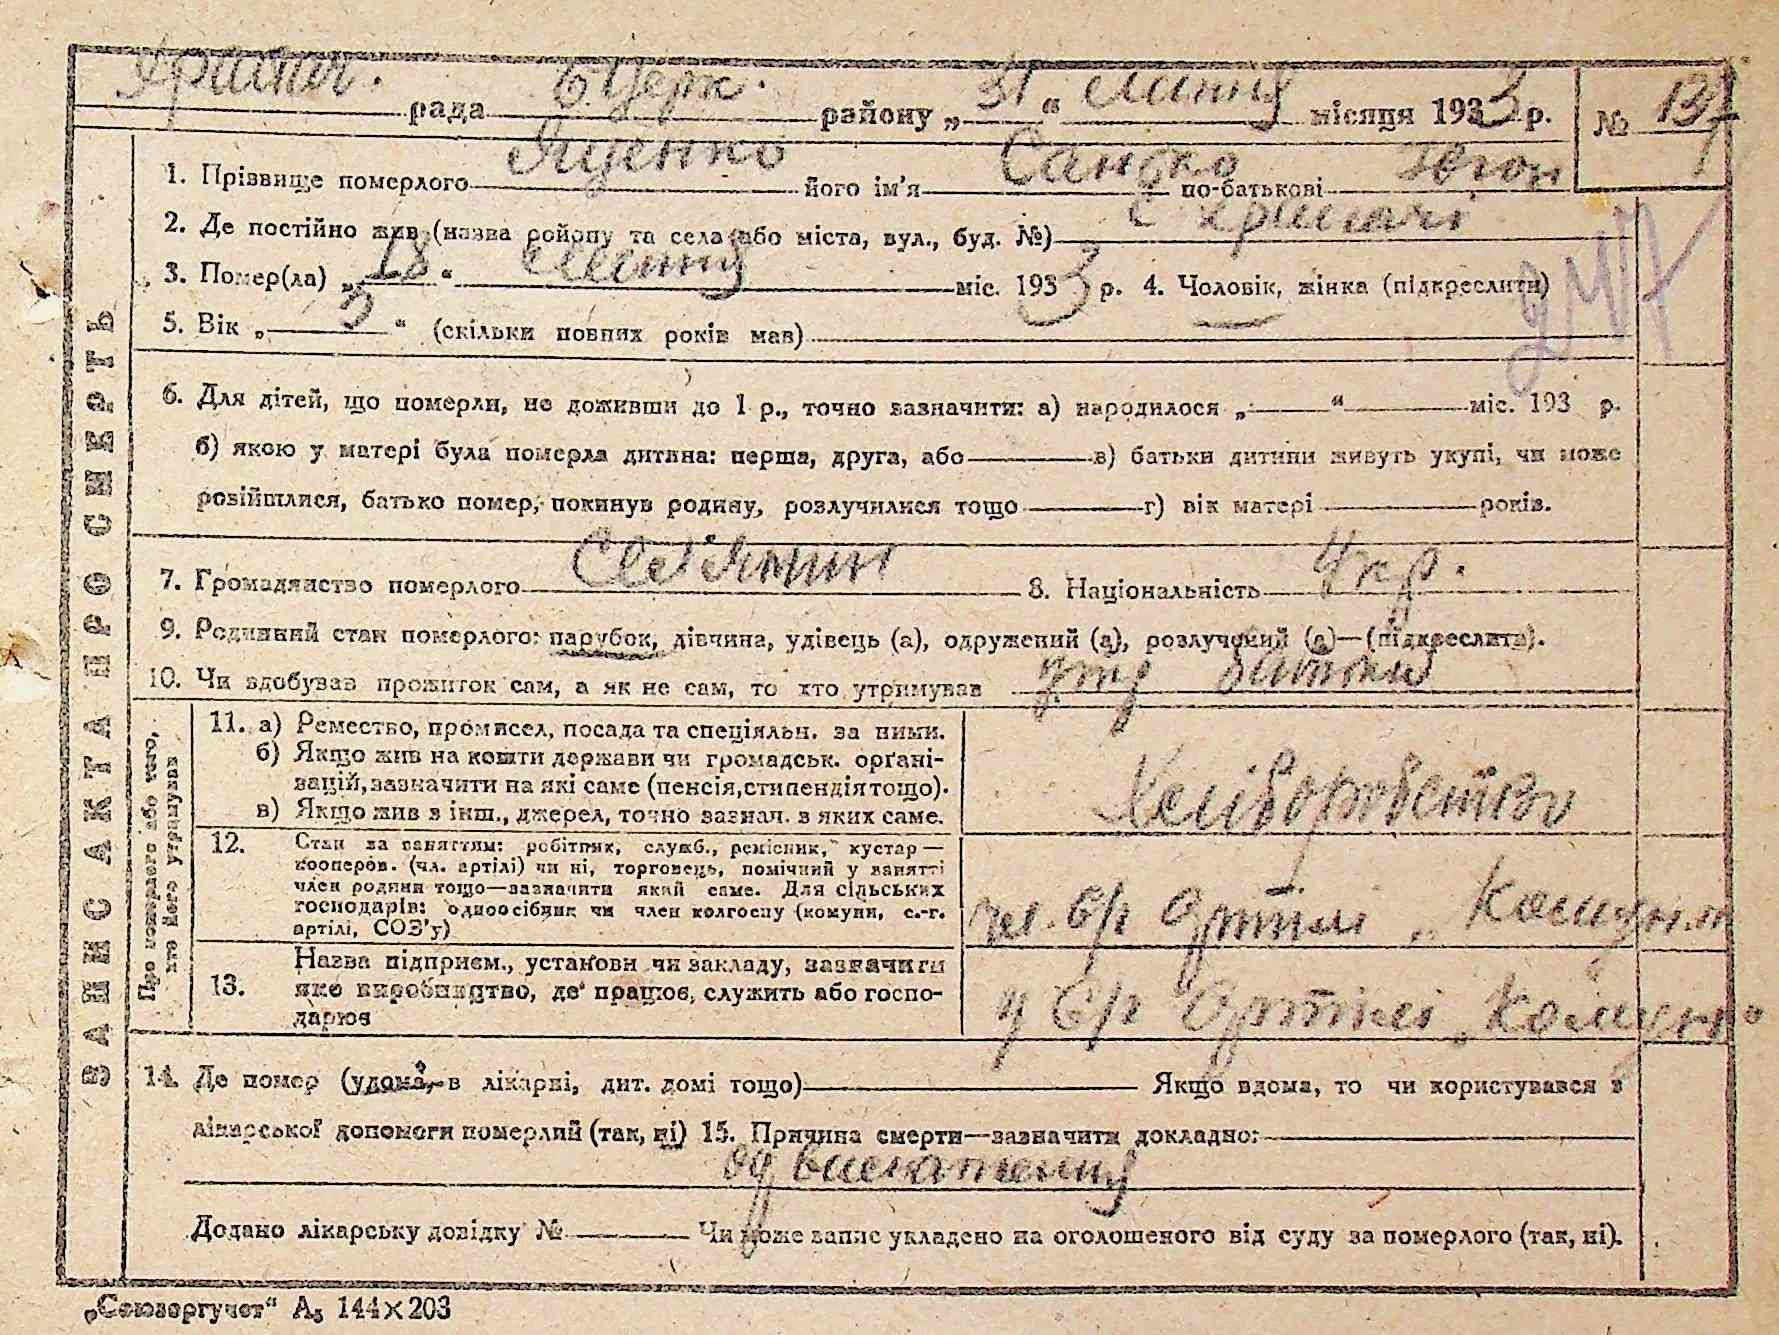 Храпач. рада Б Церк. району „ 31 “ липня місяця 1933 р. № 137
1. Прізвище померлого Яценко його ім'я Санько і по-батькові
2. Де постійно жив (назва району та села або міста, вул., буд. №) с Храпачі
3. Помер(ла) „ 18 “ липня міс. 1933 р. 4. Чоловік, жінка (підкреслити)
5. Вік „ 5 “ (скільки повних років мав)
6. Для дітей, що померли, не доживши до 1 р., точно зазначити: а) народилося „ “ міс. 193 р.
б) якою у матері була померла дитина: перша, друга, або в) батьки дитини живуть укупі, чи може
розійшлися, батько помер, покинув родину, розлучилися тощо г) вік матері років.
7. Громадянство померлого Селянин 8. Національність Укр.
9. Родинний стан померлого: парубок, дівчина, удівець (а), одружений (а), розлучений (а)—(підкреслити).
10. Чи здобував прожиток сам, а як не сам, то хто утримував батьки
ЗАПИС АКТА ПРО СМЕРТЬ
Про померлого або того, хто його утримував
11. а) Ремество, промисел, посада та спеціяльн. за ними.
б) Якщо жив на кошти держави чи громадськ. органі-
зацій, зазначити на які саме (пенсія, стипендія тощо).
в) Якщо жив з інш., джерел, точно зазнач. з яких саме.
Хліборобство
12. Стан за заняттям: робітник, служб., ремісник, кустар—
кооперов. (чл. артілі) чи ні, торговець, помічний у занятті
член родини тощо—зазначити який саме. Для сільських
господарів: одноосібник чи член колгоспу (комуни, с.-г.
артілі, СОЗ'у)
чл. с/г Артілі „
13. Назва підприєм., установи чи закладу, зазначити
яке виробництво, де працює, служить або госпо-
дарює
у с/г Артілі „
14. Де помер (удома, в лікарні, дит. домі тощо) Якщо вдома, то чи користувався з
лікарської допомоги померлий (так, ні) 15. Причина смерти—зазначити докладно:
од виснаження
Додано лікарську довідку № Чи може запис укладено на оголошеного від суду за померлого (так, ні).
„Союзоргучет“ А5 144×203